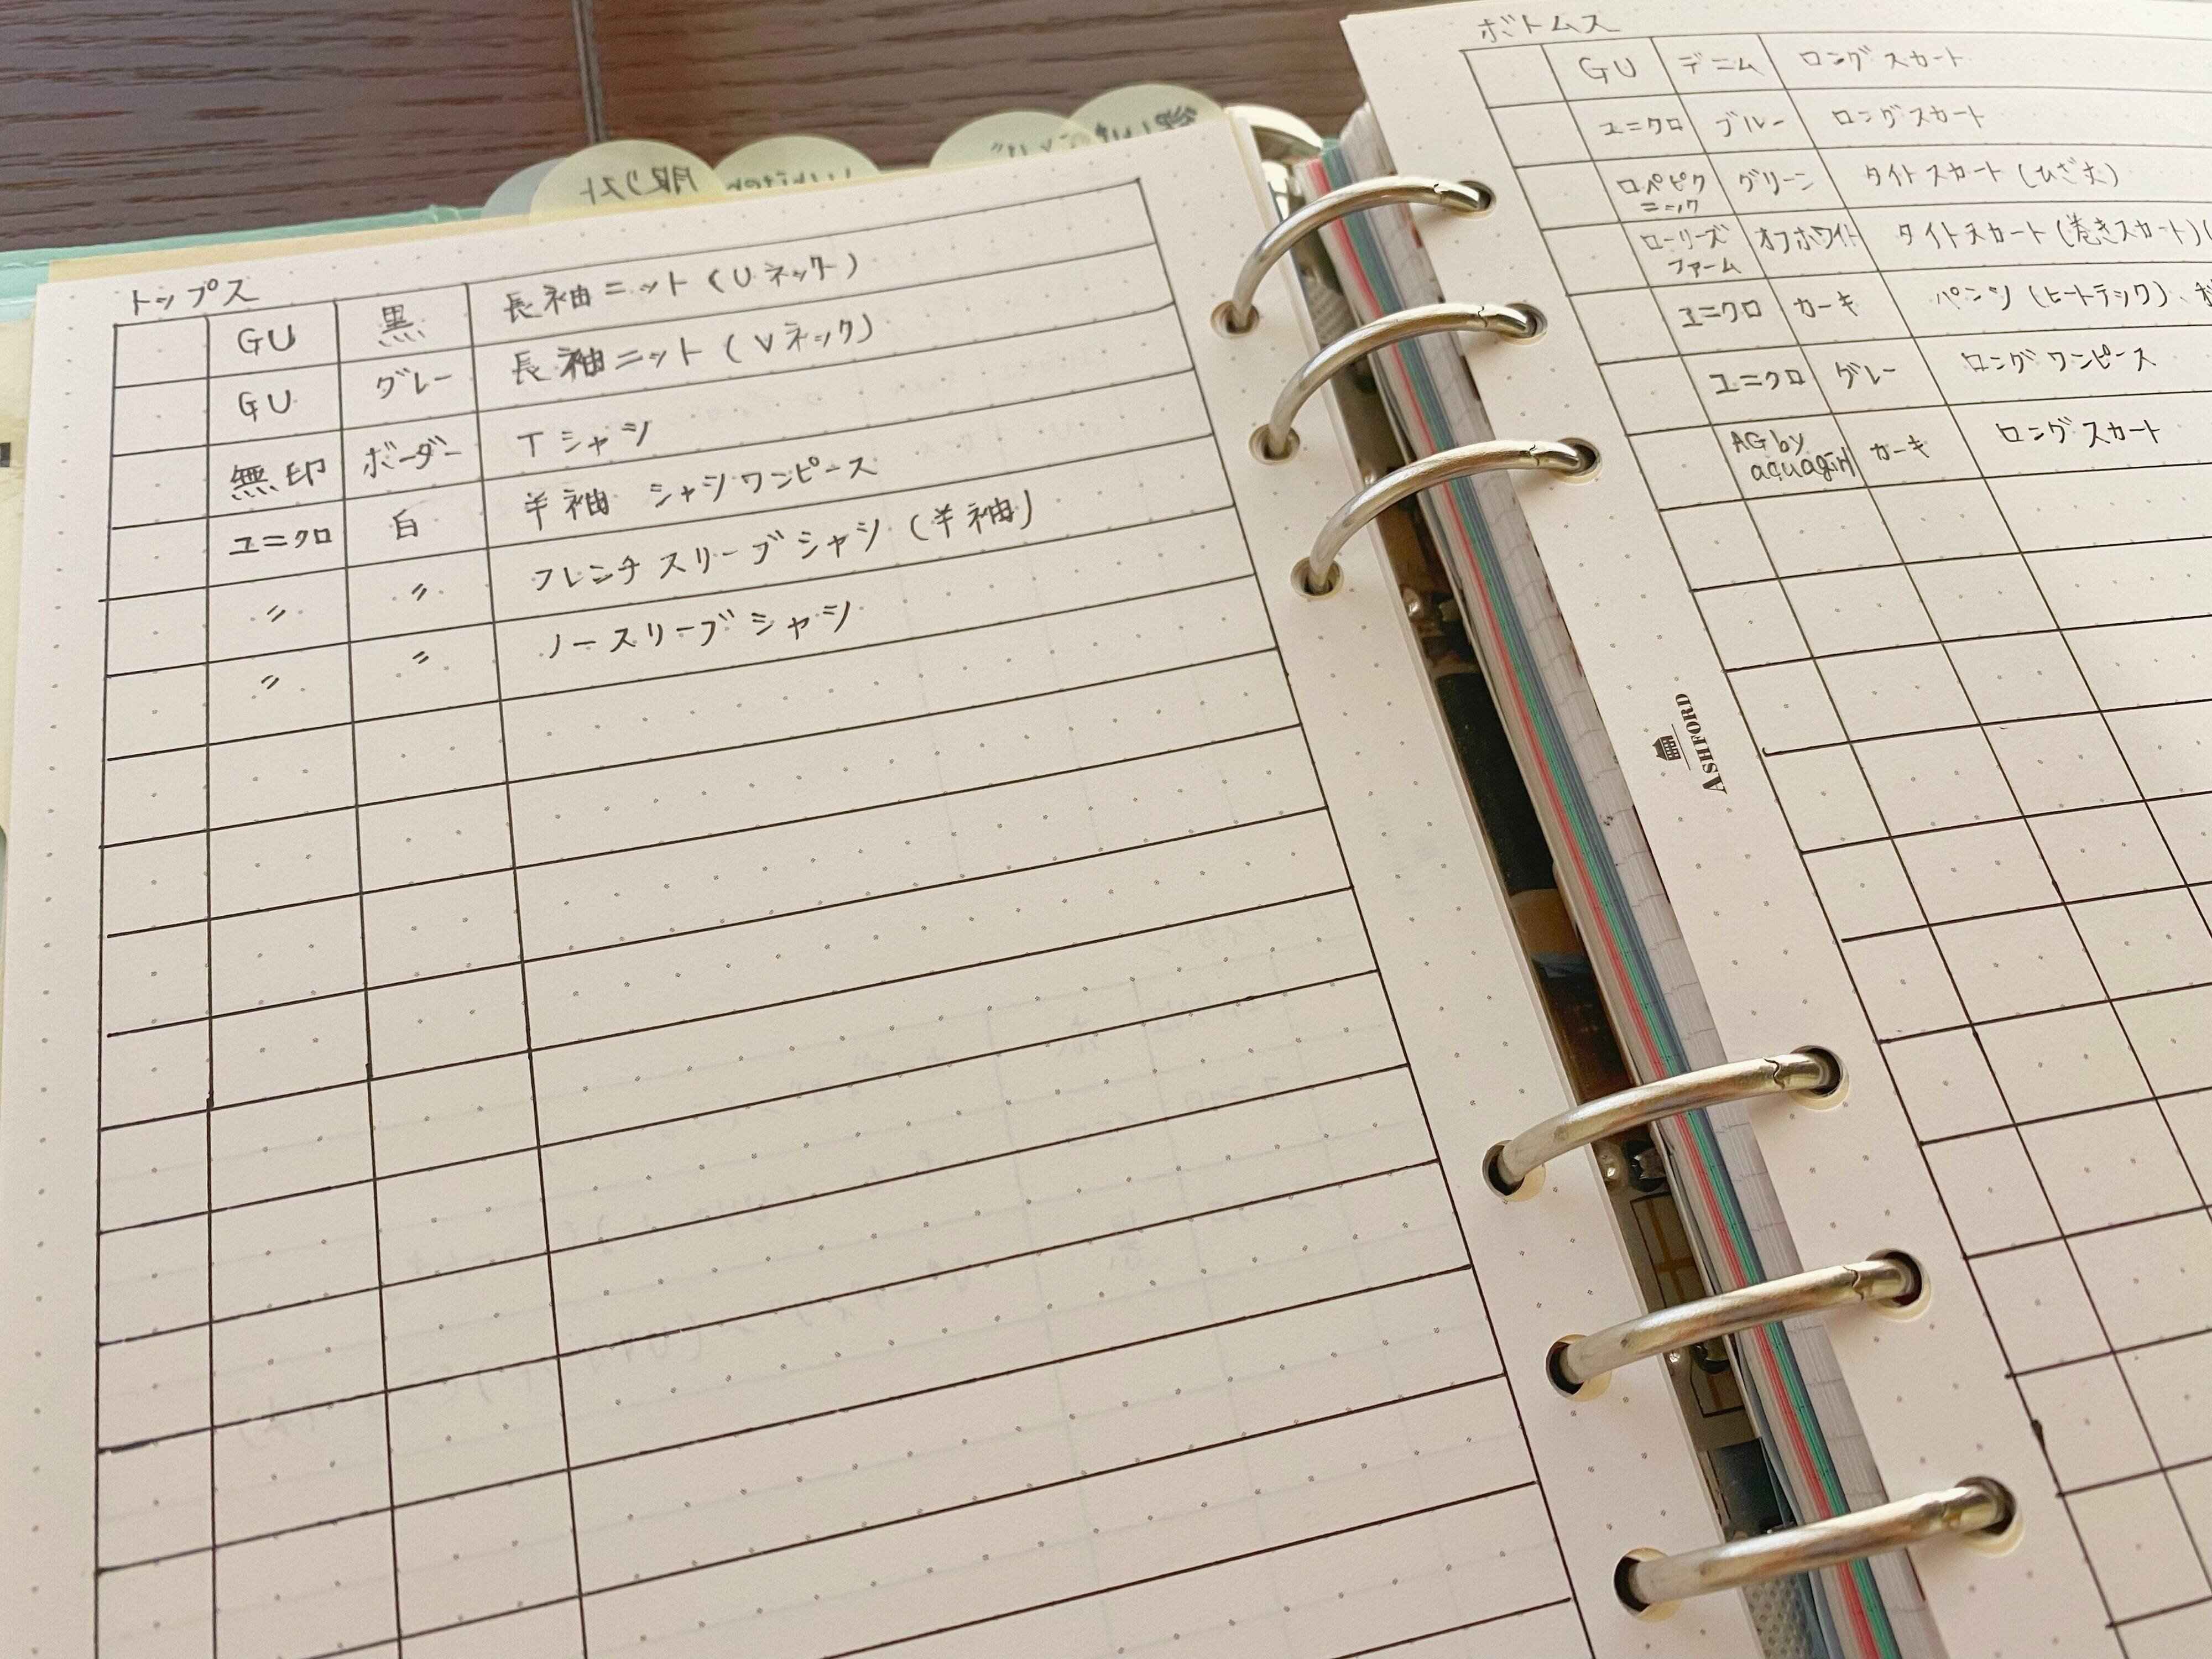 服リスト
トップス
GU 黒 長袖ニット(Uネック)
GU グレー 長袖ニット(Vネック)
無印 ボーダー Tシャツ
ユニクロ 白 半袖 シャツワンピース
〃 〃 フレンチスリーブシャツ(半袖)
〃 〃 ノースリーブシャツ
ボトムス
GU デニム ロングスカート
ユニクロ ブルー ロングスカート
ロペピク グリーン タイトスカート(ひざ丈)
ニック
ローリーズ オフホワイト タイトスカート(巻きスカート)(
ファーム
ユニクロ カーキ パンツ(ヒートテック)、
ユニクロ グレー ロングワンピース
AG by カーキ ロングスカート
aquagirl
ASHFORD